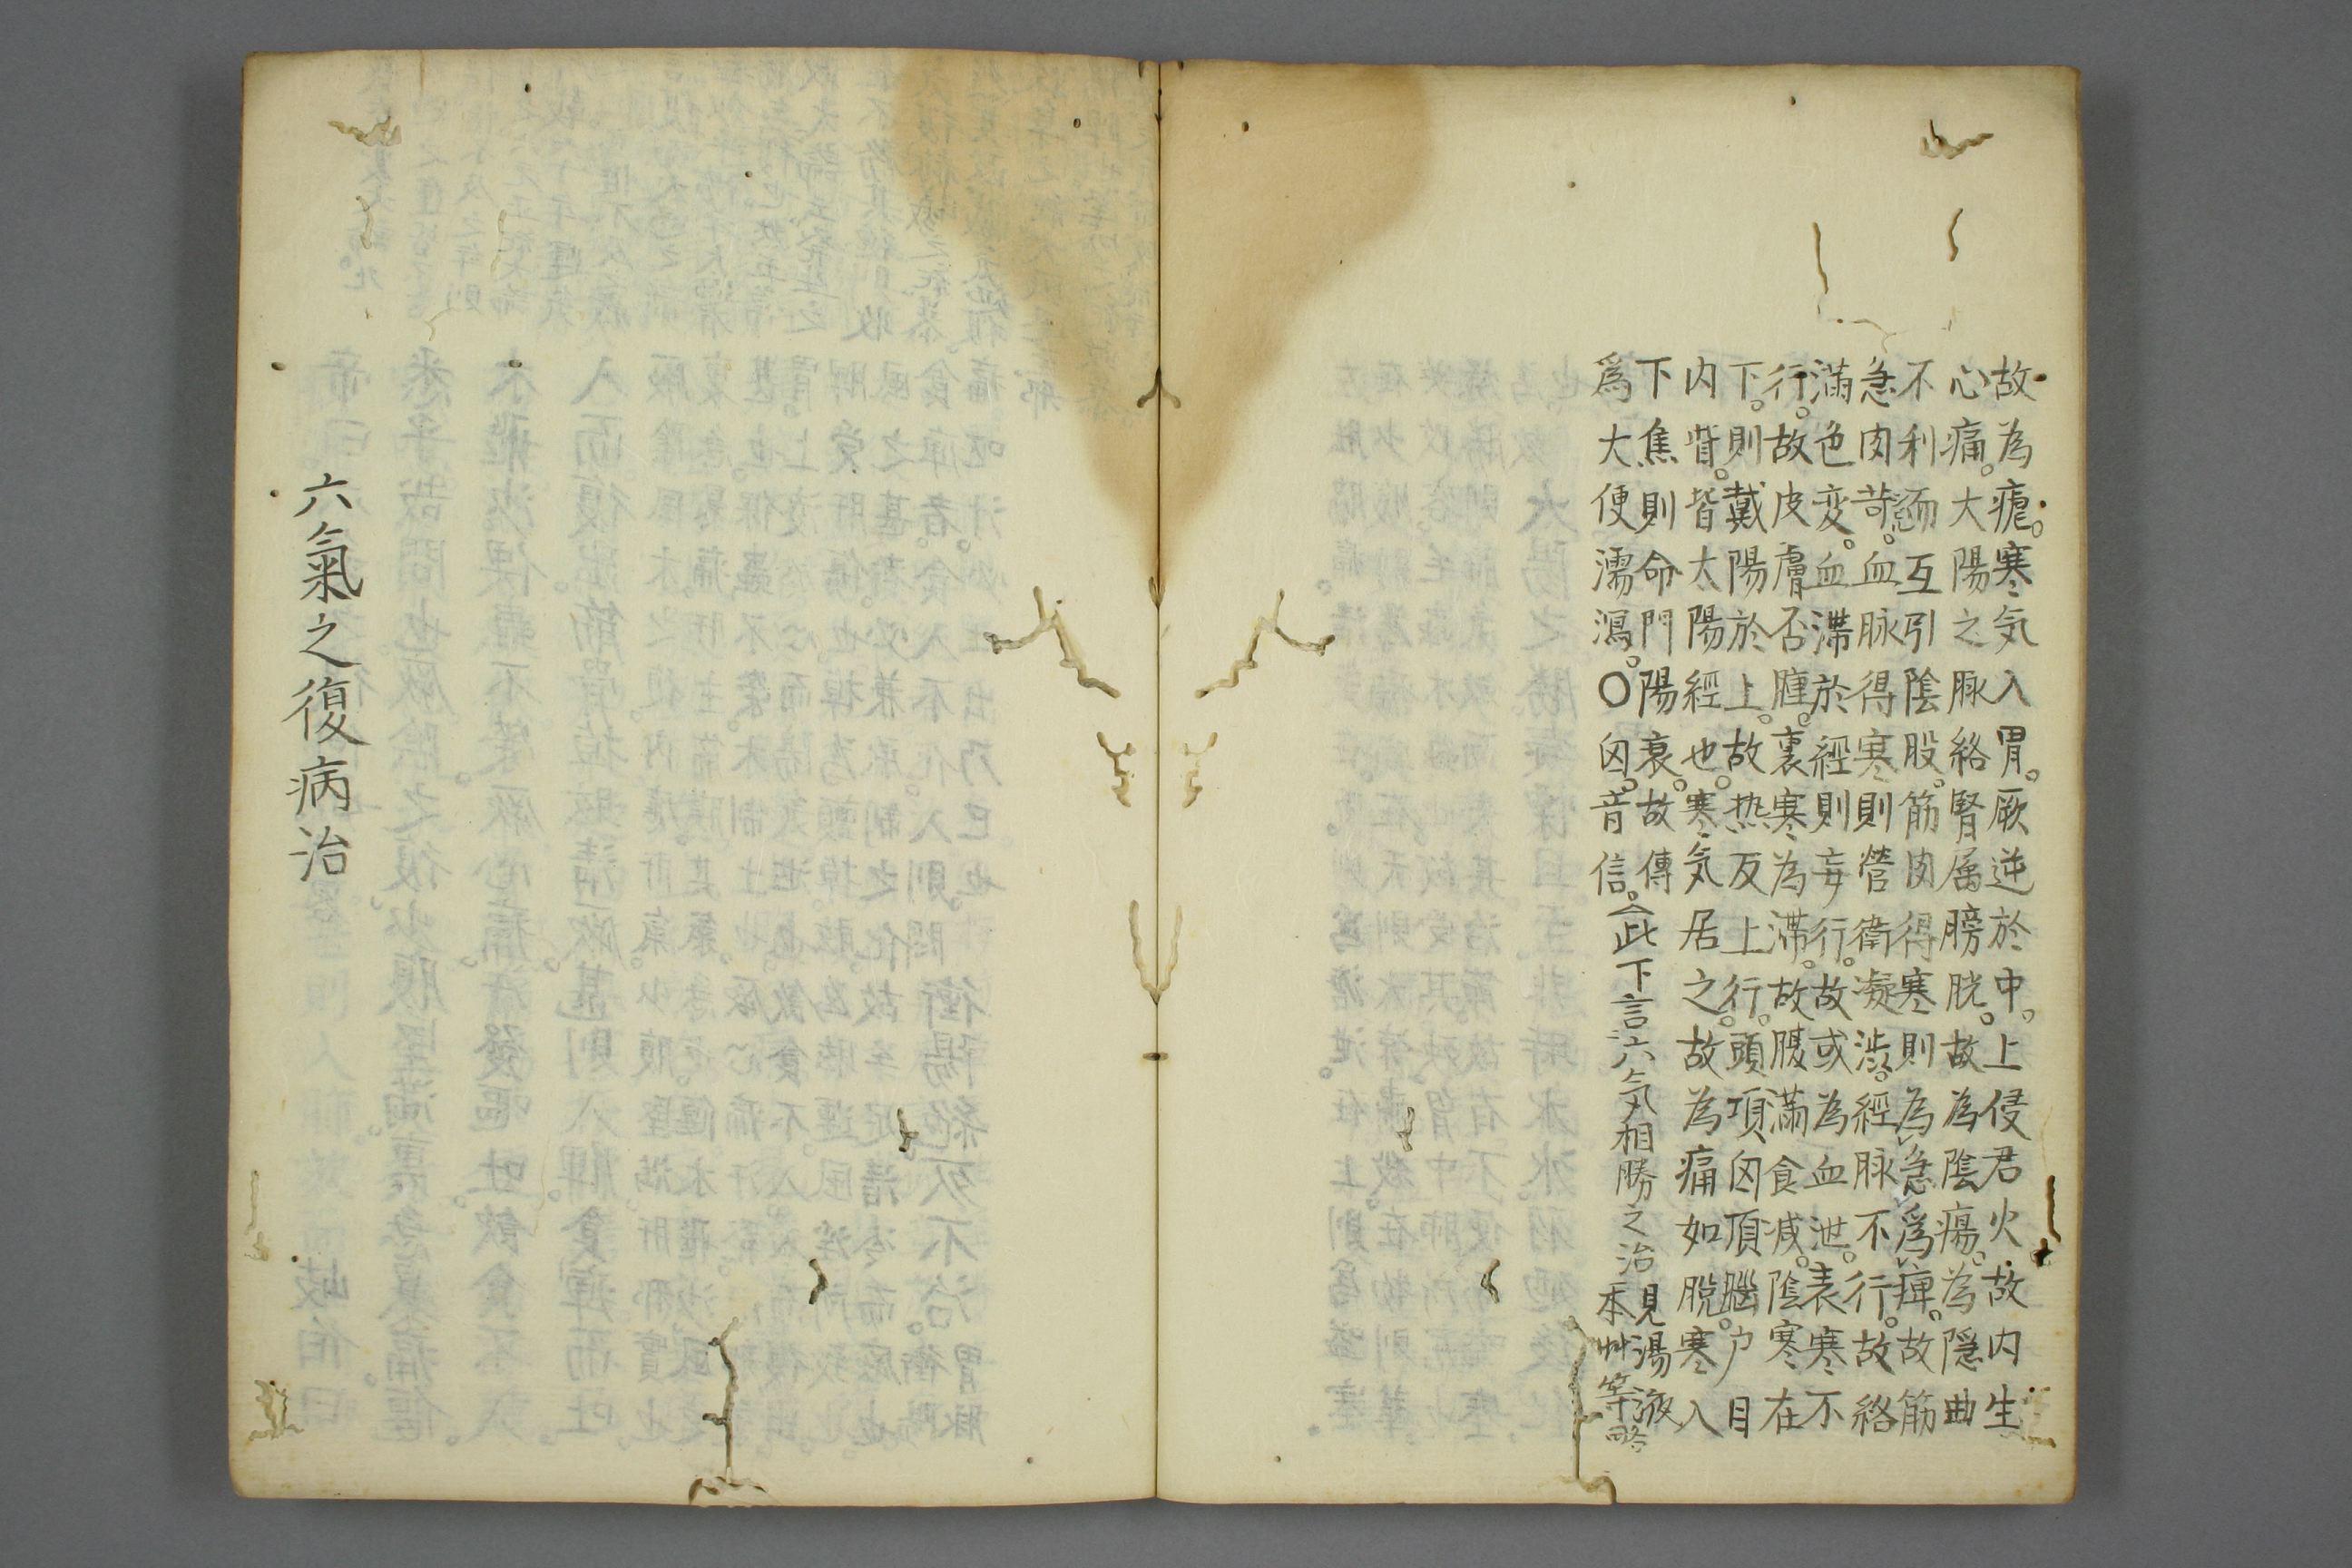 故為瘧。寒気入胃。厥逆於中。上侵君火。故内生
心痛。大陽之脉絡腎属膀胱。故為陰瘍。為隠曲
不利而互引陰股。筋肉得寒則為急為痺。故筋
急肉苛。血脉得寒則營衛凝渋。經脉不行。故絡
滿色変。血滞於經則妄行。故或為血泄。表寒不
行。故皮膚否腫。裏寒為滞。故腹滿食减。陰寒在
下。則戴陽於上。故热反上行。頭項囟頂腦户目
内眥。皆太陽經也。寒気居之故為痛如脱寒入
下焦則命門陽衰。故傳
爲大便濡瀉。〇囟。音信。
此下言六気相勝之治
見湯液
本艸等略
六氣之復病治